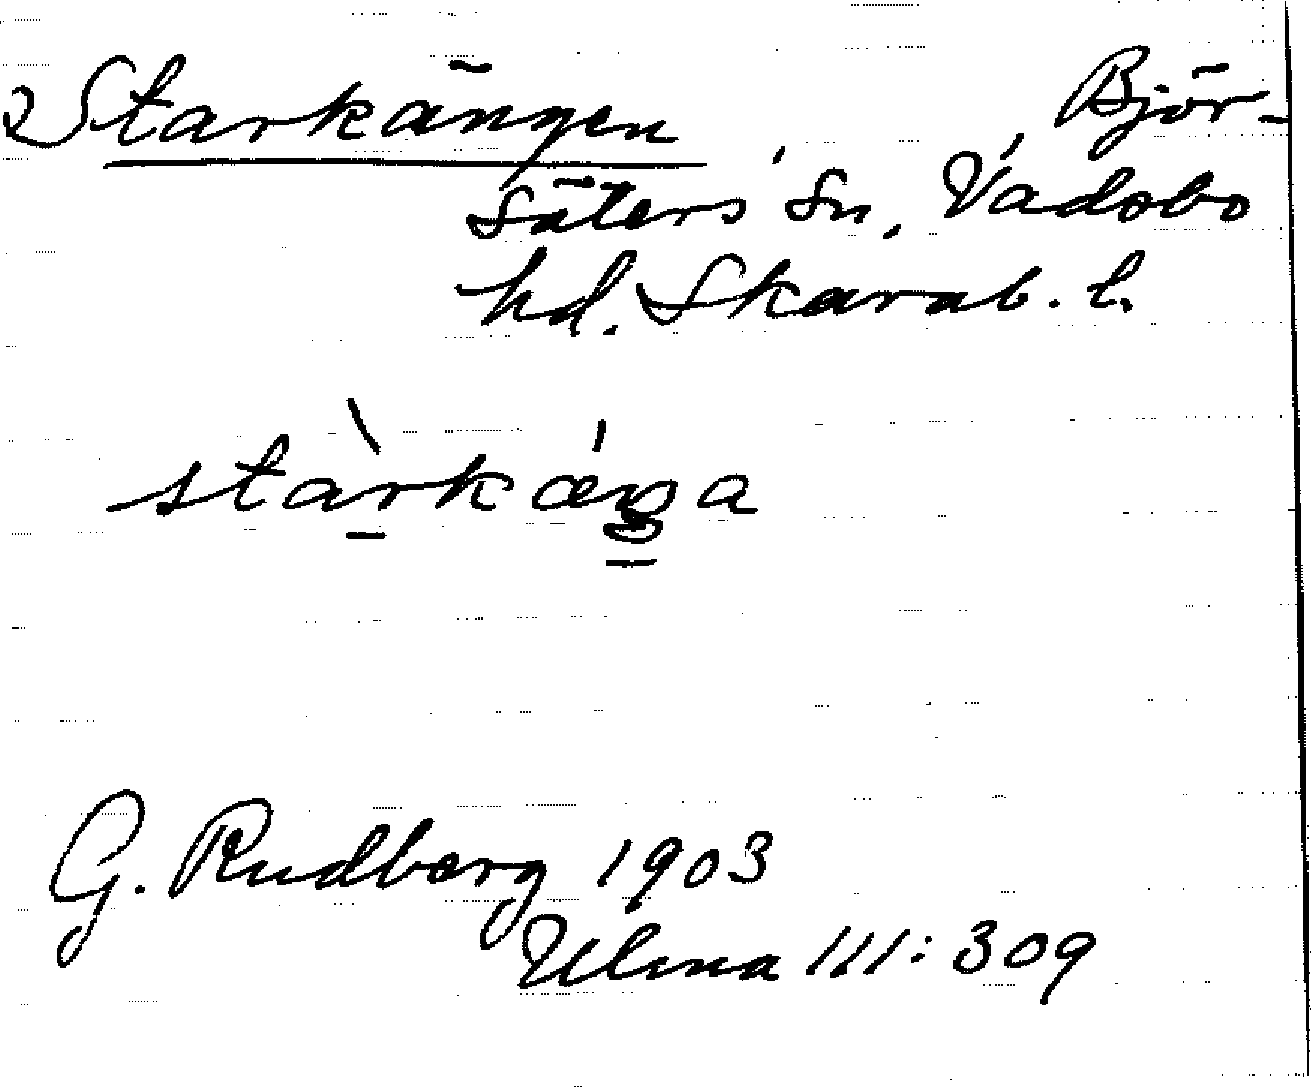 Starkängen Björ-
säters sn, Vadsbo
hd. Skarab. l.
stàrkǽŋa
G. Rudberg 1903
Ulma 111:309